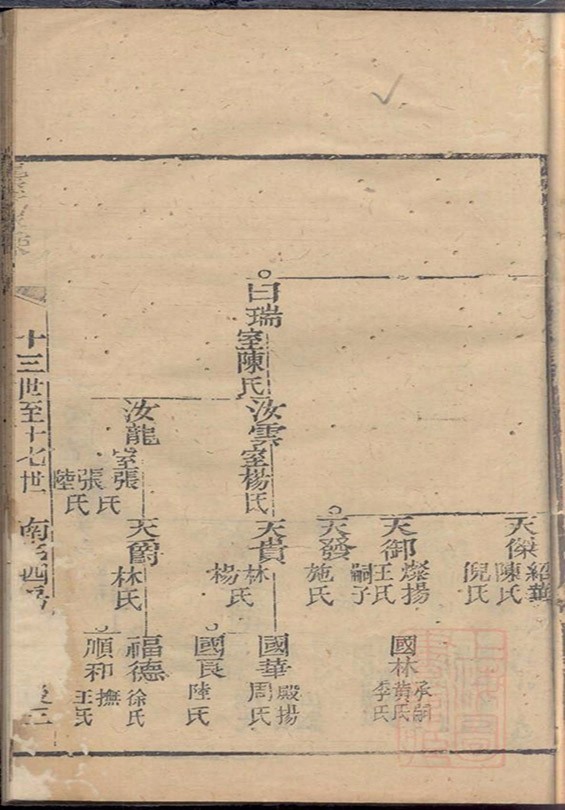 曰瑞室陳氏
汝雲室楊氏
汝龍室張氏
張氏
陸氏
天傑
紹華
陳氏
倪氏
天御
燦揚
王氏
嗣子
天發
施氏
天貴
林氏
楊氏
天爵
林氏
國林
承嗣
黄氏
季氏
國華
殿揚
周氏
國良
陸氏
福德
徐氏
順和
撫
王氏
十三世至十七世